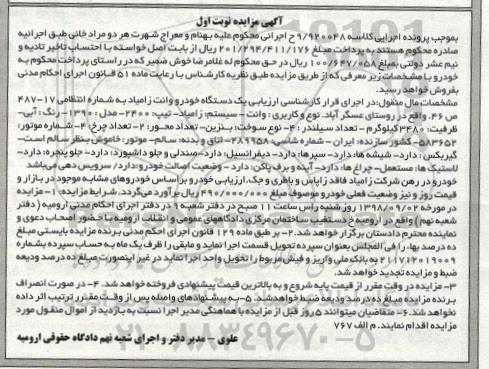 آگهی مزایده نوبت اول
بموجب پرونده اجرایی کلاسه ۹/۹۲۰۰۴۸ ح اجرائی محکوم علیه بهنام و معراج شهرت هر دو مراد خانی طبق اجرائیه
صادره محکوم هستند به پرداخت مبلغ ۲۰۱/۲۹۴/۴۱۱/۱۷۶ ریال از بابت اصل خواسته با احتساب تاخیر تادیه و
نیم عشر دولتی بمبلغ ۱۰۰/۶۴۷/۰۵۸ ریال در حق محکوم له غلامرضا خوش ضمیر که در راستای پرداخت محکوم به
خودرو با مشخصات زیر معرفی که از طریق مزایده طبق نظریه کارشناس با رعایت ماده ۵۱ قانون اجرای احکام مدنی
بفروش خواهد رسید.
مشخصات مال منقول: در اجرای قرار کارشناسی ارزیابی یک دستگاه خودرو وانت زامیاد به شماره انتظامی ۱۷-۴۸۷
ص ۴۶، واقع در روستای عسگر آباد. نوع و کاربری: وانت - سیستم: زامیاد- تیپ: ۲۴۰۰- مدل: ۱۳۹۰- رنگ: آبی-
ظرفیت: ۳۴۸۰ کیلوگرم - تعداد سیلندر: ۴- نوع سوخت: بنزین- تعداد محور: ۲- تعداد چرخ: ۴- شماره موتور:
۵۸۳۶۵۲- کشور سازنده: ایران - شماره شاسی: ۲۸۹۹۵۸- اتاق و بدنه: سالم- موتور: خاموش بنظر سالم است-
گیربکس: دارد- شیشه ها: دارد- سپرها: دارد- دیفرانسیل: دارد- صندلی و جلو داشبورد: دارد- جلو پنجره: دارد-
لاستیک ها: مستعمل- چراغ ها: دارد- آینه و برف پاکن: دارد - وضعیت اصالت خودرو: دارد/ سرویس دهی می باشد
خودرو در رهن شرکت زامیاد فاقد زاپاس و باطری و جک. ارزیابی خودرو بر اساس خودروهای مشابه موجود در بازار و
قیمت روز و نیز وضعیت فعلی خودرو موصوف مبلغ ۴۹۰/۰۰۰/۰۰۰ ریال برآورد می گردد. شرایط مزایده: ۱- مزایده
در مورخه ۱۳۹۸/۰۹/۰۲ روز شنبه راس ساعت ۱۱ صبح در دفتر شعبه ۹ در دفتر اجرای احکام مدنی ارومیه (دفتر
شعبه نهم) واقع در ارومیه خ دستغیب ساختمان مرکزی دادگاههای عمومی و انقلاب ارومیه با حضور اصحاب دعوی و
نماینده محترم دادستان برگزار خواهد شد. ۲- بر طبق ماده ۱۲۹ قانون اجرای احکام مدنی برنده مزایده بایستی مبلغ
ده درصد بها، را فی المجلس بعنوان سپرده تحویل قسمت اجرا نماید و مابقی را ظرف یک ماه به حساب سپرده بشماره
۲۱۷۱۲۰۱۹۰۰۹ به بانک ملی واریز و فیش مربوط را تحویل واحد اجرا نماید در غیر اینصورت مبلغ ده درصد ودیعه
ضبط و مزایده تجدید خواهد شد.
۳- مزایده در وقت مقرر از قیمت پایه شروع و به بالاترین قیمت پیشنهادی فروخته خواهد شد. ۴- در صورت انصراف
برنده مزایده مبلغ ده درصد ودیعه ضبط خواهد شد. ۵- به پیشنهادهای واصله پس از وقت مقرر ترتیب اثر داده
نخواهد شد. ۶- متقاضیان میتوانند ۵ روز قبل از مزایده با هماهنگی مدیر اجرا نسبت به بازدید از اموال منقول مورد
مزایده اقدام نمایند. م الف ۷۶۷
علوی - مدیر دفتر و اجرای شعبه نهم دادگاه حقوقی ارومیه
۰۲۱-۸۸۳۴۹۶۷۰-۵